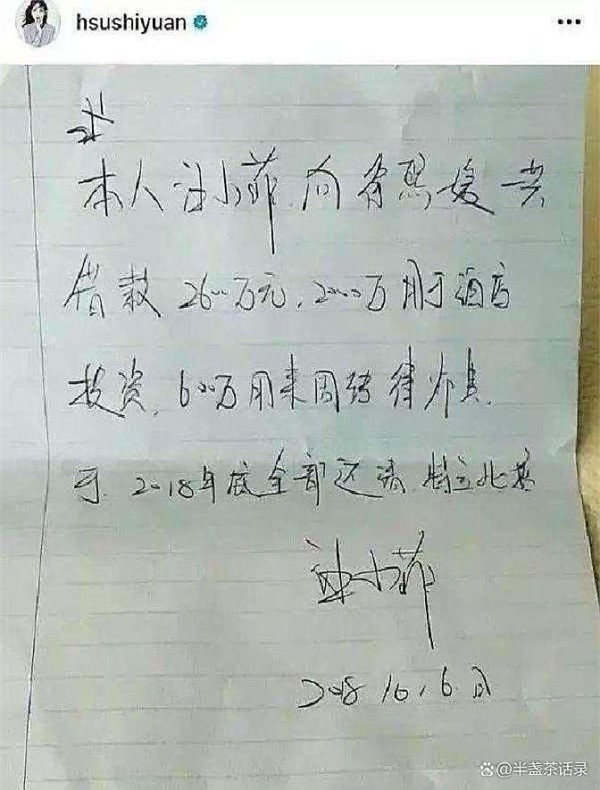 hsushiyuan
本人汪小菲,向徐熙媛共
借款2600万元,2000万用于酒店
投资,600万用来周转律师费.
于2018年底全部还清,特立此据
汪小菲
2018.10.6日
@半盏茶话录